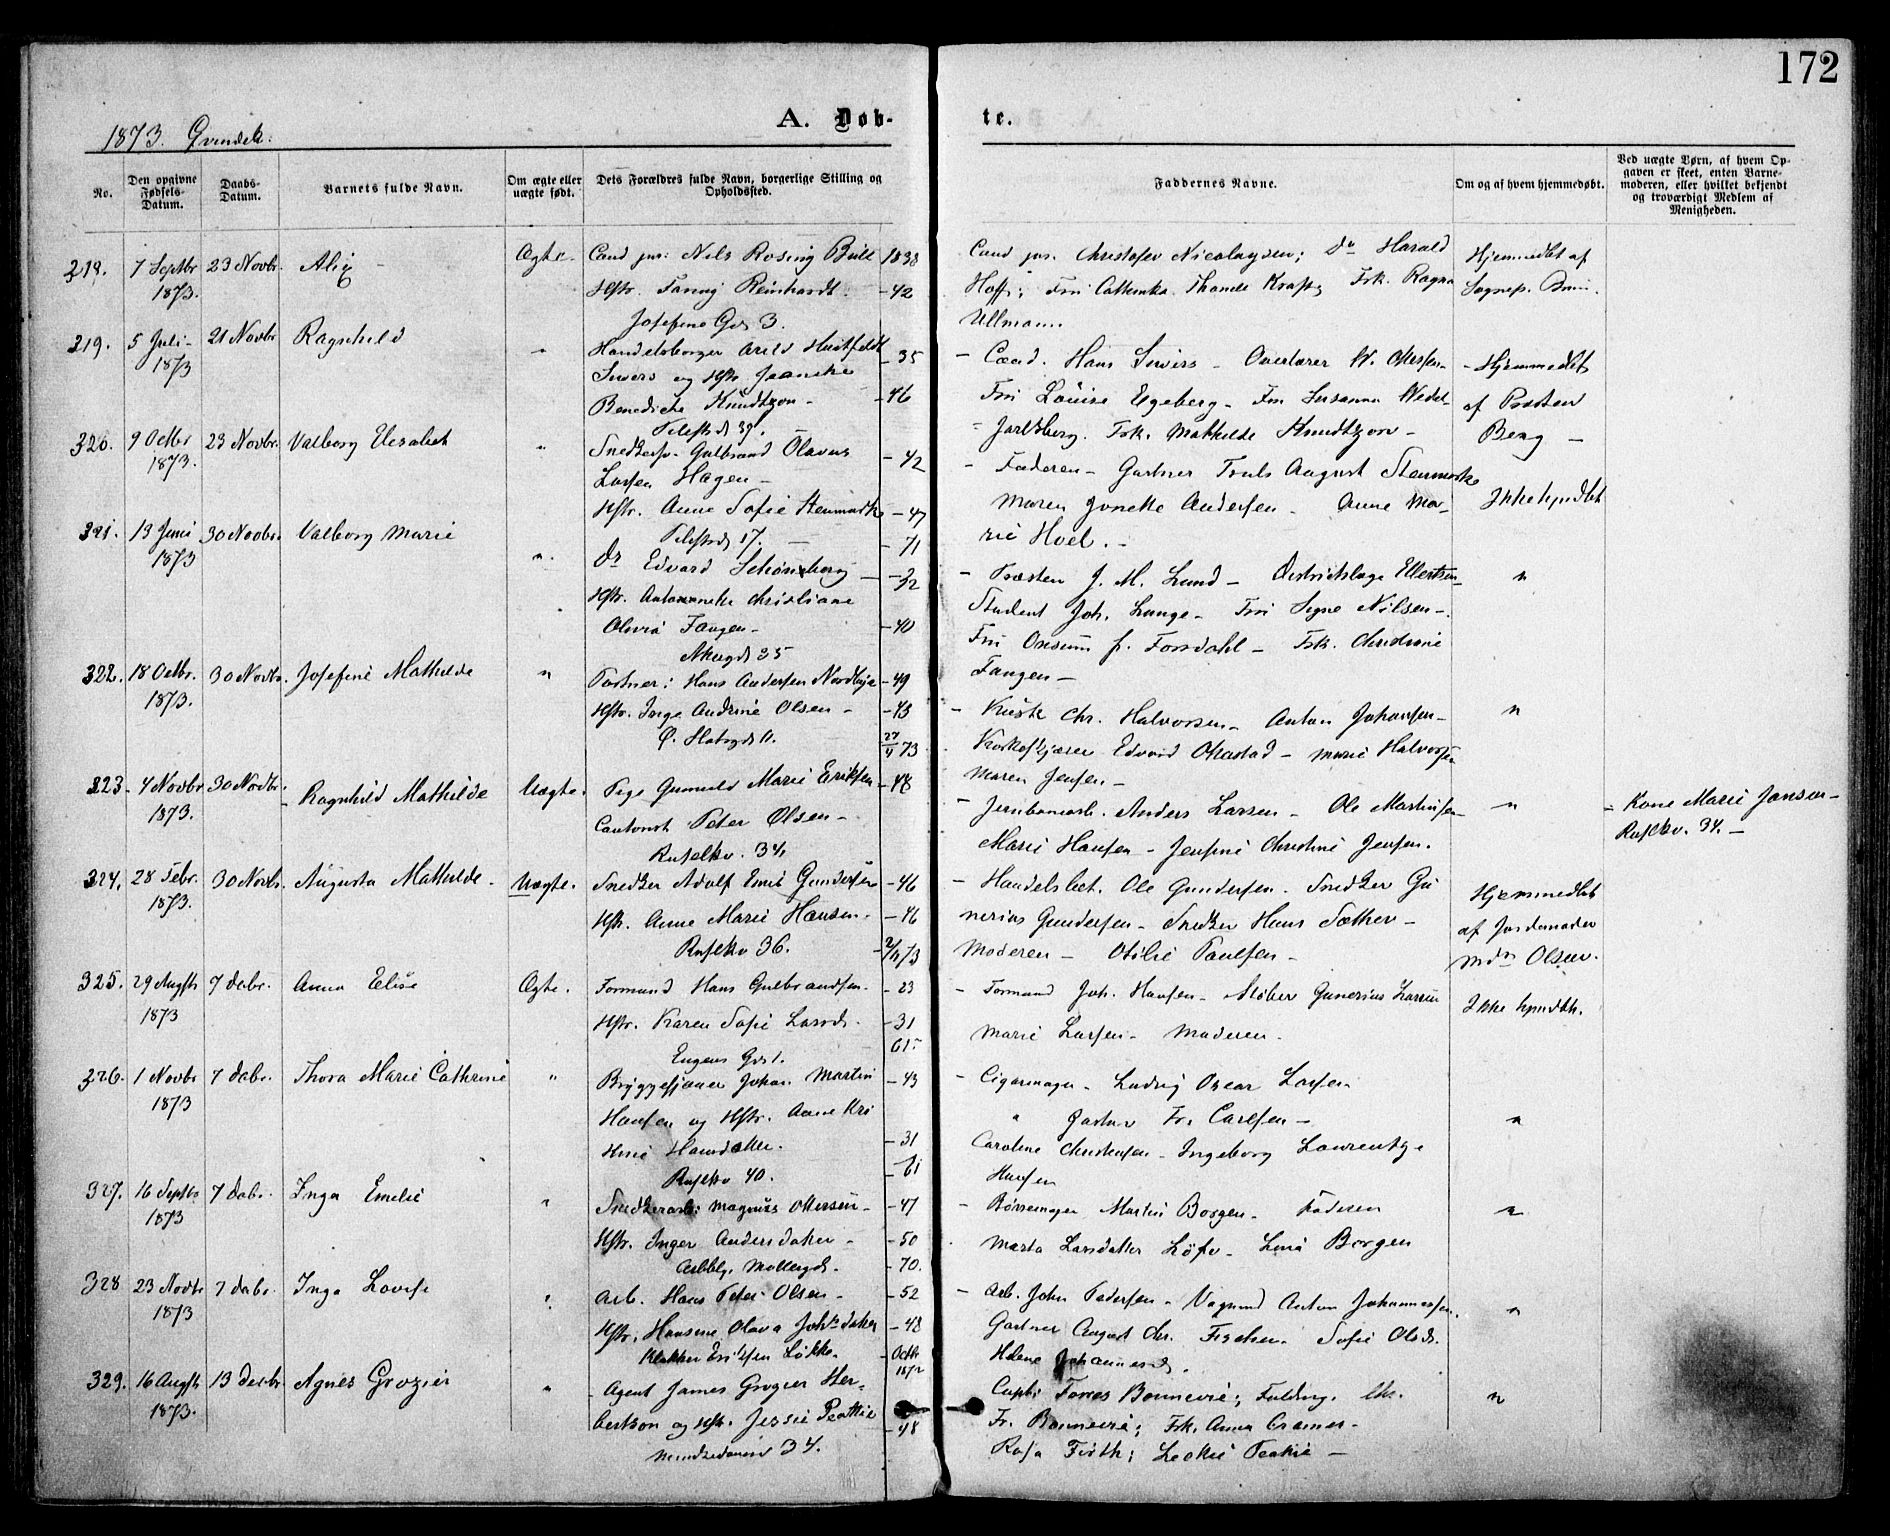 172
A. Døb-
te.
1873. Qvindek.
No.
Den opgivne Fødsels-Datum.
Daabs-Datum.
Barnets fulde Navn.
Om ægte eller uægte født.
Dets Forældres fulde Navn, borgerlige Stilling og Opholdssted.
Faddernes Navne.
Om og af hvem hjemmedøbt.
Ved uægte Børn, af hvem Op-
gaven er skeet, enten Barne-
moderen, eller hvilket bekjendt
og troværdigt Medlem af
Menigheden.
318. 7 Septbr 23 Novbr. Ægte. Cand jur: Nils Rosing Bull 1838
1873. Hstr. Fanny Reinhardt. -42
Josefine Gd. 3.
Cand jur. Christofer Nicolaysen; Do Harald
Hoff; Fru Cathinka Krafft Frk. Ragna
Ullmann.
Hjemmedbt af
Sognep. Bruun.
319. 5 Juli 21 Novbr Ragnhild " Handelsborger Arild Huitfeldt -35
1873 Siwers og Hstr Jeanette
Benedicte Knudtzon - -46
Pilestd 39.
- Cand. Hans Siwers - Overlærer
Fru Louise Egeberg - Fru Susanna Wedel-
Jarlsberg. Frk. Mathilde Knudtzon -
- Hjemmedbt
af Presten
Berg -
320. 9 Octbr 23 Novbr. Valborg Elisabet " Snedkersv. Gulbrand Olavus -42
1873. Larsen Hagen -
Hstr. Anne Sofie Stenmark -47
Pilestd 17. -71
- Faderen - Gartner Truls August Stenmark
Maren Jonette Andersen - Anne Ma-
rie Hoel. -
Ikke hjmdbt
321. 13 Juni 30 Novbr. Valborg Marie " Dr Edvard Schønberg - -32
1873 Hstr. Antoinette Christiane
Olivia Fangen - -40
Akersgd 35
- Præsten J. M. Lund - Districtslæge Ellertsen
Student Joh. Lange - Fru Signe Nilsen -
Fru Onsum f. Forsdahl - Frk. Christiane
Fangen -
"
322. 18 Octbr. 30 Novbr. Josefine Mathilde " Portner: Hans Andersen Nordbye -49
1873. Hstr. Inge Andrine Olsen - -43
Ø. Slotsgd 11. 27/11 73
- Kusk Chr. Halvorsen - Anton Johansen -
Edvard - Marie Halvorsen
Maren Jensen -
"
323 - 4 Novbr 30 Novbr. - Ragnhild Mathilde Uægte. Pige Gunnild Marie Eriksen -48
1873. Cantonist Peter Olsen -
Ruselkv. 34,
- Jernbanearb. Anders Larsen - Ole Martinsen -
Marie Hansen - Jensine Christine Jensen.
"
- Kone Marie Jansen -
Ruselkv. 34. -
324. 28 Febr. 30 Novbr. Augusta Mathilde. Uægte. Snedker Adolf Emil Gundersen -46
1873. Hstr. Anne Marie Hansen. -46
Ruselkv 36. - 2/11/73
- Handelsbet. Ole Gundersen - Snedker Gu
nerius Gundersen - Snedker Hans Sæther -
Moderen - Otilie Paulsen -
Hjemmedbt
af Jordemoder
Mdm Olsen.
325. 29 Augst 7 Decbr. Anna Elise Ægte. Formand Hans Gulbrandsen - -23
1873 Hstr. Karen Sofie Larsd. -31
Eugens Gd 1. 61
- Formand Joh. Hansen - Støber Gunerius Larsen
Marie Larsen - Moderen.
Ikke hjmdbt.
326. 1 Novbr 7 Decbr. Thora Marie Cathrine " Bryggesjauer Johan Martin -43
1873 Hansen og Hstr. Anne Kri
stine Hansdatter. -31
Ruselkv 40. -61
- Cigarmager - Ludvig Oscar Larsen
" Gartner Fr. Carlsen -
Caroline Christensen - Ingeborg
Hansen
"
327. 16 Septbr 7 Decbr. Inga Emilie " Snedkerarb: Magnus Ottersen - -47
1873 Hstr. Inger Andersdatter - -50
Arbblg, Møllergd. -70.
- Børstemager Martin Borgen - Faderen
Marta Larsdatter - Lina Borgen
"
328 23 Novbr 7 Decbr. Inga Lovise " Arb. Hans Peter Olsen - -52
1873 Hstr. Hansine Olava Johsdatter -48
Løkke. - Octbr 1872
- Arb. John Pedersen - Vognmd Anton Johannessen.
Gartner August Chr. Fischer. Sofie Olsd.
Helene Johannesd.
"
329. 16 Augst 13 Decbr. Agnes Grozier " - Agent James Grozier Her-
1873. bertson og Hstr. Jessie Peattie -48
Munkedamsv 34.
Capt: Torres Bonnevie; Fuldm. Chr.
Fr. Bonnevie; Frk. Anna Cramer -
Rosa Firth; Peattie -
"